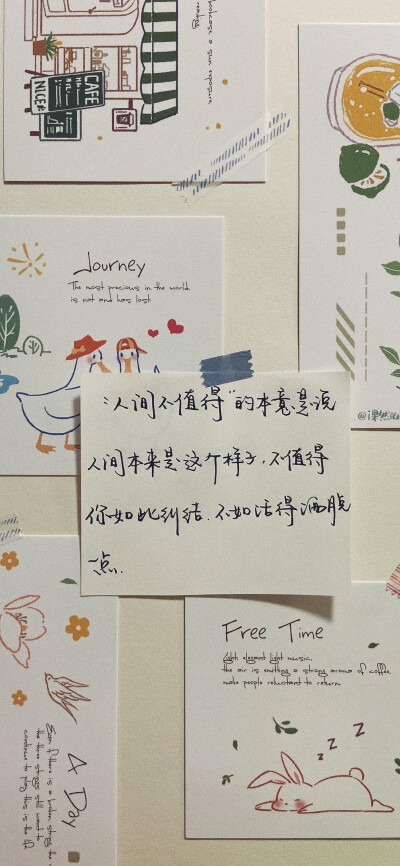 CAFE
NICE
Journey
The most precious in the world
is not and has lost
"人间不值得"的本意是说
人间本来是这个样子，不值得
你如此纠结，不如活得洒脱
一点.
Free Time
Light elegant light music,
the air is emitting a strong aroma of coffee,
make people reluctant to return
z z z
A Day